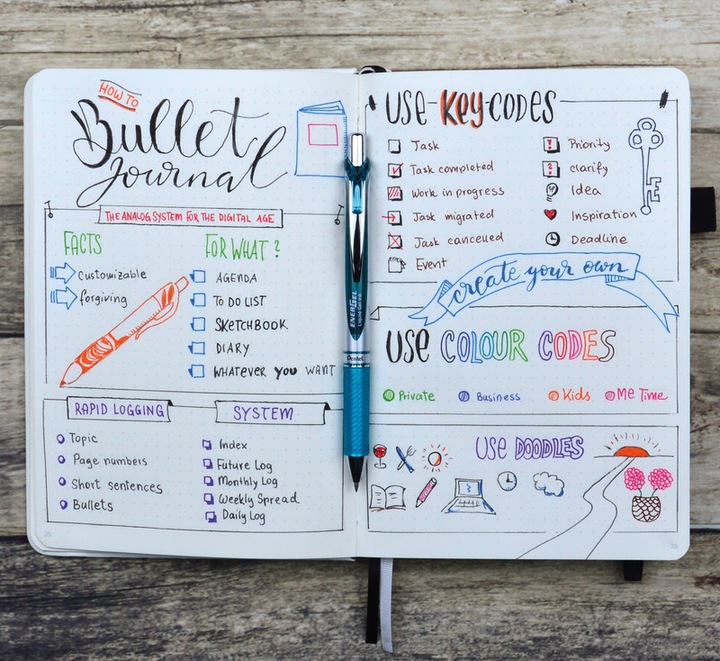 HOW TO
Bullet
Journal
THE ANALOG SYSTEM FOR THE DIGITAL AGE
FACTS
Customizable
forgiving
FOR WHAT?
AGENDA
TO DO LIST
SKETCHBOOK
DIARY
WHATEVER YOU WANT
RAPID LOGGING
Topic
Page numbers
Short sentences
Bullets
SYSTEM
Index
Future Log
Monthly Log
Weekly Spread
Daily Log
25
ENERGEL
Liquid Gel Ink
Pentel
USE KEY CODES
Task
Task completed
Work in progress
Task migrated
Task cancelled
Event
Priority
clarify
Idea
Inspiration
Deadline
create your own
USE COLOUR CODES
Private
Business
Kids
Me Time
USE DOODLES
26